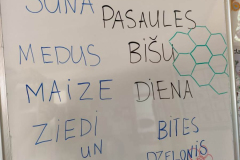 SŪNA
PASAULES
MEDUS BIŠU
MAIZE DIENA
ZIEDI BITES
UN DZELONIS